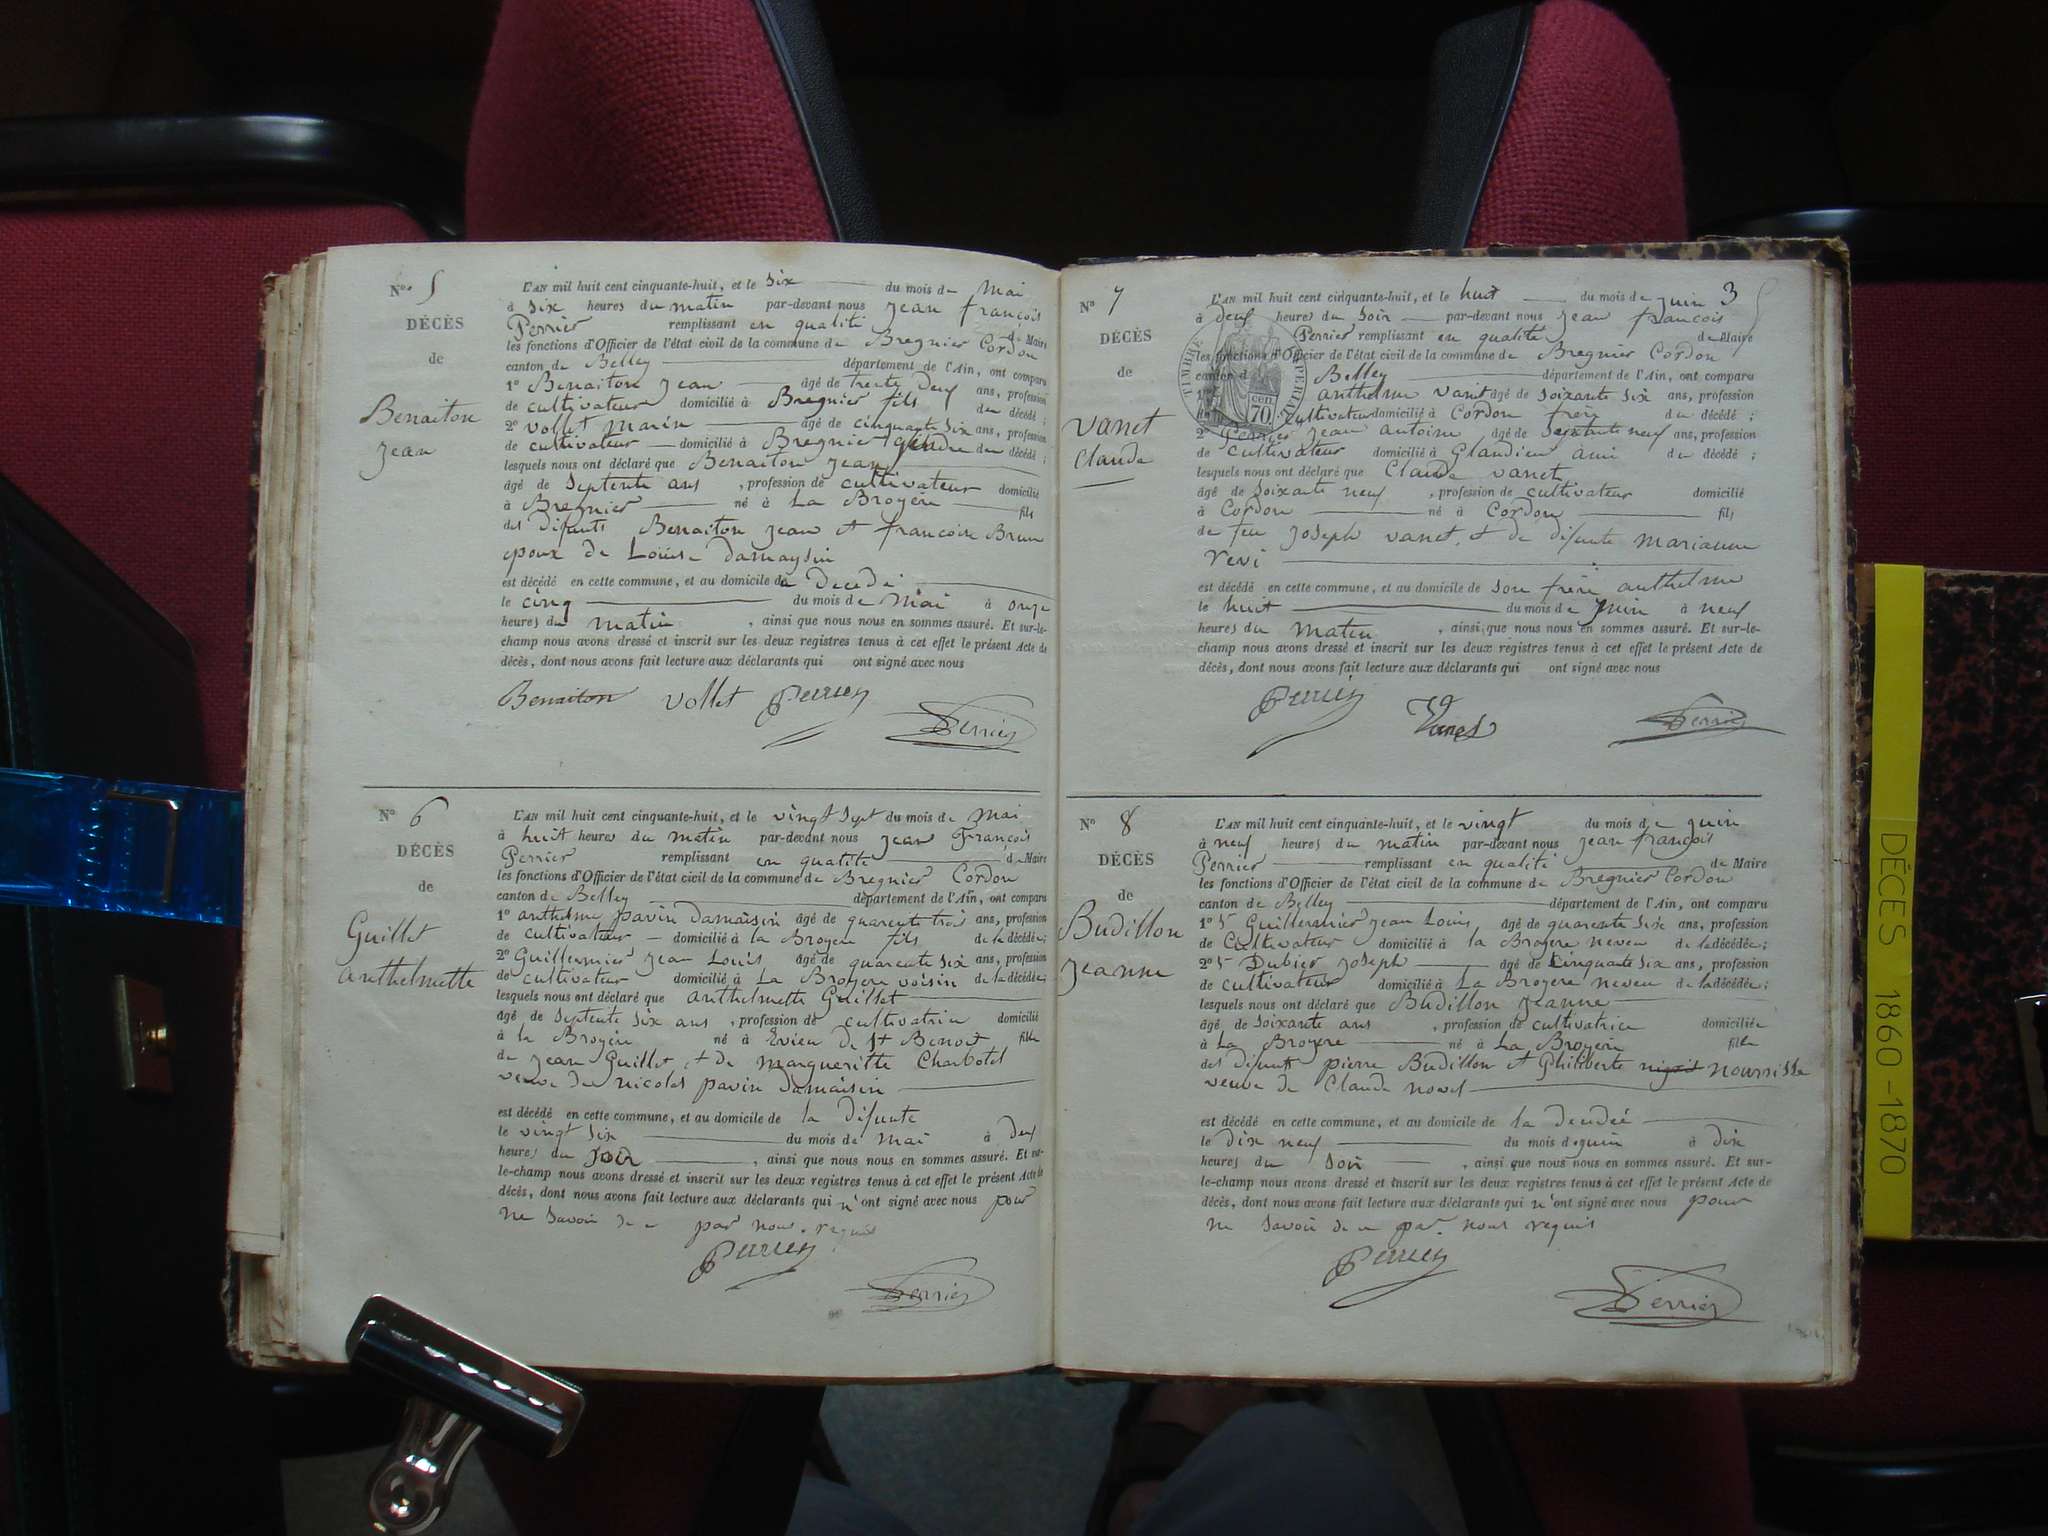 N° 5
DÉCÈS
de
Benaiton
Jean
L'AN mil huit cent cinquante-huit, et le six du mois de Mai
à six heures du matin par-devant nous Jean françois
Perrier remplissant en qualité de Maire
les fonctions d'Officier de l'état civil de la commune de Bregnier Cordon
canton de Belley département de l'Ain, ont comparu
1° Benaiton Jean âgé de trente deux ans, profession
de cultivateur domicilié à Bregnier fils du décédé ;
2° vollet marin âgé de cinquante six ans, profession
de cultivateur domicilié à Bregnier gendre du décédé ;
lesquels nous ont déclaré que Benaiton Jean
âgé de septente ans , profession de cultivateur domicilié
à Bregnier né à La Broyere fils
des difunts Benaiton Jean et francoise Brun
epoux de Louise damaysin
est décédé en cette commune, et au domicile du decedé
le cinq du mois de Mai à onze
heures du matin , ainsi que nous nous en sommes assuré. Et sur-le-
champ nous avons dressé et inscrit sur les deux registres tenus à cet effet le présent Acte de
décès, dont nous avons fait lecture aux déclarants qui ont signé avec nous
Benaiton vollet Perrier
Perrier
N° 6
DÉCÈS
de
Guillet
anthelmette
L'AN mil huit cent cinquante-huit, et le vingt sept du mois de Mai
à huit heures du matin par-devant nous Jean François
Perrier remplissant en qualité de Maire
les fonctions d'Officier de l'état civil de la commune de Bregnier Cordon
canton de Belley département de l'Ain, ont comparu
1° anthelme pavin damaisin âgé de quarente trois ans, profession
de cultivateur domicilié à la Broyere fils de la décédée;
2° Guillermier Jean Louis âgé de quarente six ans, profession
de cultivateur domicilié à La Broyere voisin de la décédée;
lesquels nous ont déclaré que anthelmette Guillet
âgé de septente six ans , profession de cultivatrice domicilié
à la Broyere né à Evieu de St Benoit fille
de Jean Guillet et de margueritte Charbotel
veuve de nicolas pavin damaisin
est décédé en cette commune, et au domicile de la difunte
le vingt six du mois de mai à deux
heures du soir , ainsi que nous nous en sommes assuré. Et sur-
le-champ nous avons dressé et inscrit sur les deux registres tenus à cet effet le présent Acte de
décès, dont nous avons fait lecture aux déclarants qui n'ont signé avec nous pour
ne savoir de ce par nous requis
Perrier
Perrier
N° 7
DÉCÈS
de
vanet
Claude
3
L'AN mil huit cent cinquante-huit, et le huit du mois de juin
à deux heures du soir par-devant nous Jean francois
Perrier remplissant en qualité de Maire
les fonctions d'Officier de l'état civil de la commune de Bregnier Cordon
canton d Belley département de l'Ain, ont comparu
1° anthelme vanet âgé de soixante six ans, profession
de cultivateur domicilié à Cordon frère du décédé ;
2° Perrier Jean antoine âgé de septente neuf ans, profession
de cultivateur domicilié à Glandieu ami du décédé ;
lesquels nous ont déclaré que Claude vanet
âgé de soixante neuf , profession de cultivateur domicilié
à Cordon né à Cordon fils
de feu Joseph vanet, et de difunte marianne
revi
est décédé en cette commune, et au domicile de son frère anthelme
le huit du mois de Juin à neuf
heures du matin , ainsi que nous nous en sommes assuré. Et sur-le-
champ nous avons dressé et inscrit sur les deux registres tenus à cet effet le présent Acte de
décès, dont nous avons fait lecture aux déclarants qui ont signé avec nous
Perrier Vanet Perrier
TIMBRE IMPERIAL
cen.
70
N° 8
DÉCÈS
de
Budillon
Jeanne
L'AN mil huit cent cinquante-huit, et le vingt du mois de juin
à neuf heures du matin par-devant nous Jean françois
Perrier remplissant en qualité de Maire
les fonctions d'Officier de l'état civil de la commune de Bregnier Cordon
canton de Belley département de l'Ain, ont comparu
1° Sr Guillermier Jean Louis âgé de quarente six ans, profession
de cultivateur domicilié à la Broyere neveu de la décédée;
2° Sr Dubier Joseph âgé de Cinquante six ans, profession
de cultivateur domicilié à La Broyere neveu de la décédée;
lesquels nous ont déclaré que Budillon Jeanne
âgé de soixante ans , profession de cultivatrice domiciliée
à La Broyere né à La Broyere fille
des difunts pierre Budillon et Philiberte nourisse
veuve de Claude novel
est décédé en cette commune, et au domicile de la decedée
le dix neuf du mois de juin à dix
heures du soir , ainsi que nous nous en sommes assuré. Et sur-
le-champ nous avons dressé et inscrit sur les deux registres tenus à cet effet le présent Acte de
décès, dont nous avons fait lecture aux déclarants qui n'ont signé avec nous pour
ne savoir de ce par nous requis
Perrier
Perrier
DÉCES 1860-1870